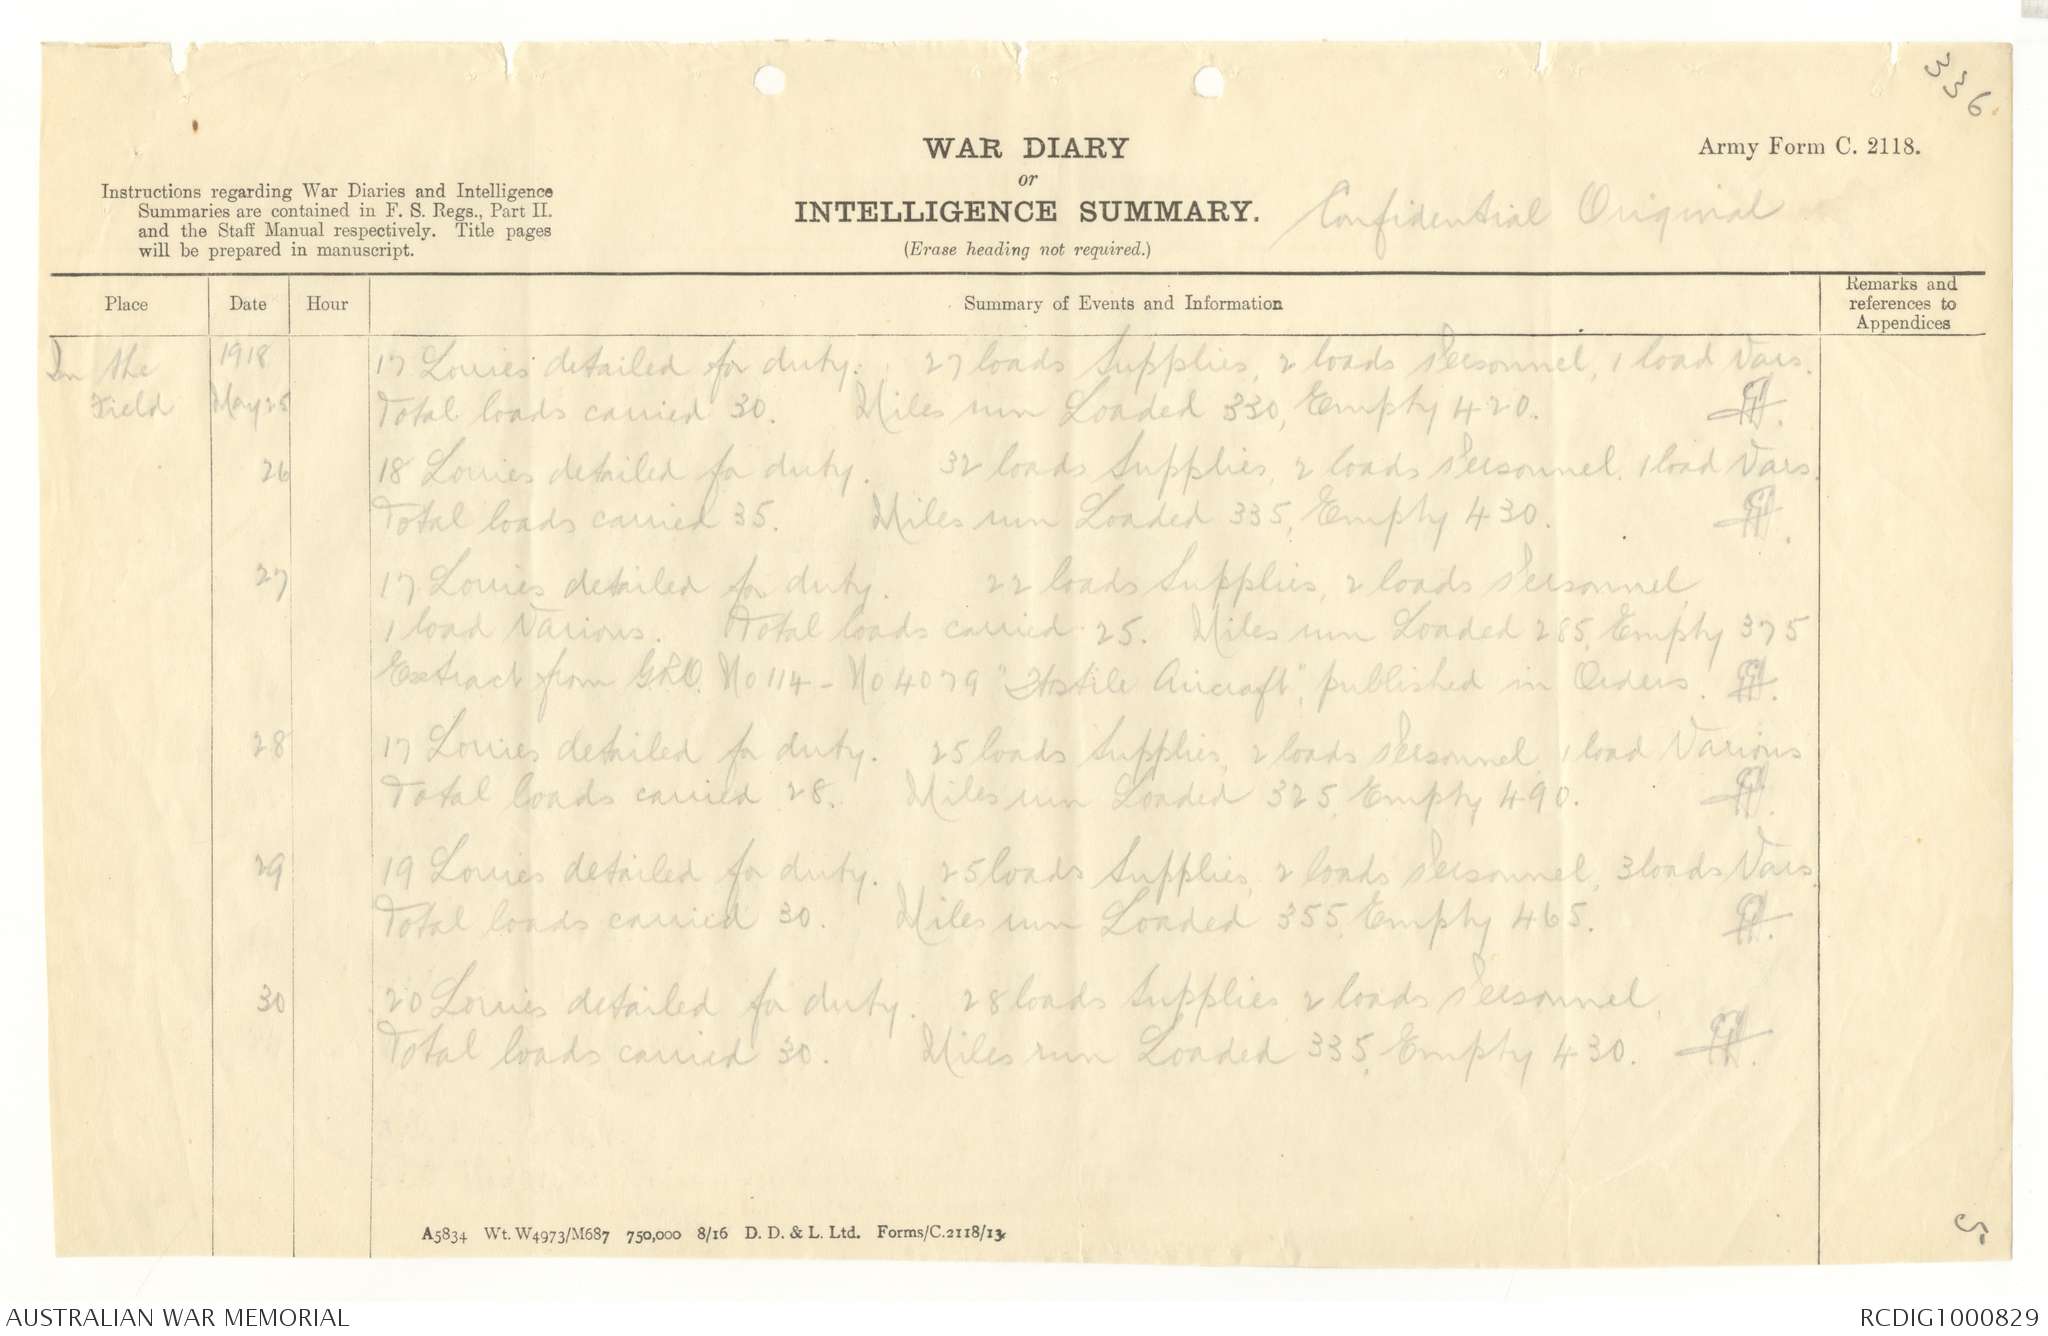 336.
WAR DIARY
or
INTELLIGENCE SUMMARY.
(Erase heading not required.)
Army Form C. 2118.
Confidential Original
Instructions regarding War Diaries and Intelligence
Summaries are contained in F. S. Regs., Part II.
and the Staff Manual respectively. Title pages
will be prepared in manuscript.
Place Date Hour Summary of Events and Information Remarks and references to Appendices
In the 1918 17 Lorries detailed for duty. 27 loads Supplies, 2 loads Personnel, 1 load Vars.
Field May 25 Total loads carried 30. Miles run Loaded 330, Empty 420.
26 18 Lorries detailed for duty. 32 loads Supplies, 2 loads Personnel, 1 load Vars.
Total loads carried 35. Miles run Loaded 335, Empty 430.
27 17 Lorries detailed for duty. 22 loads Supplies, 2 loads Personnel,
1 load Various. Total loads carried 25. Miles run Loaded 285, Empty 375
Extract from G.R.O. No 114 - No 4079 "Hostile Aircraft", published in Orders.
28 17 Lorries detailed for duty. 25 loads Supplies, 2 loads Personnel, 1 load Various
Total loads carried 28. Miles run Loaded 325, Empty 490.
29 19 Lorries detailed for duty. 25 loads Supplies, 2 loads Personnel, 3 loads Vars
Total loads carried 30. Miles run Loaded 355, Empty 465.
30 20 Lorries detailed for duty. 28 loads Supplies, 2 loads Personnel,
Total loads carried 30. Miles run Loaded 335, Empty 430.
A5834 Wt. W4973/M687 750,000 8/16 D. D. & L. Ltd. Forms/C.2118/13.
5.
AUSTRALIAN WAR MEMORIAL
RCDIG1000829